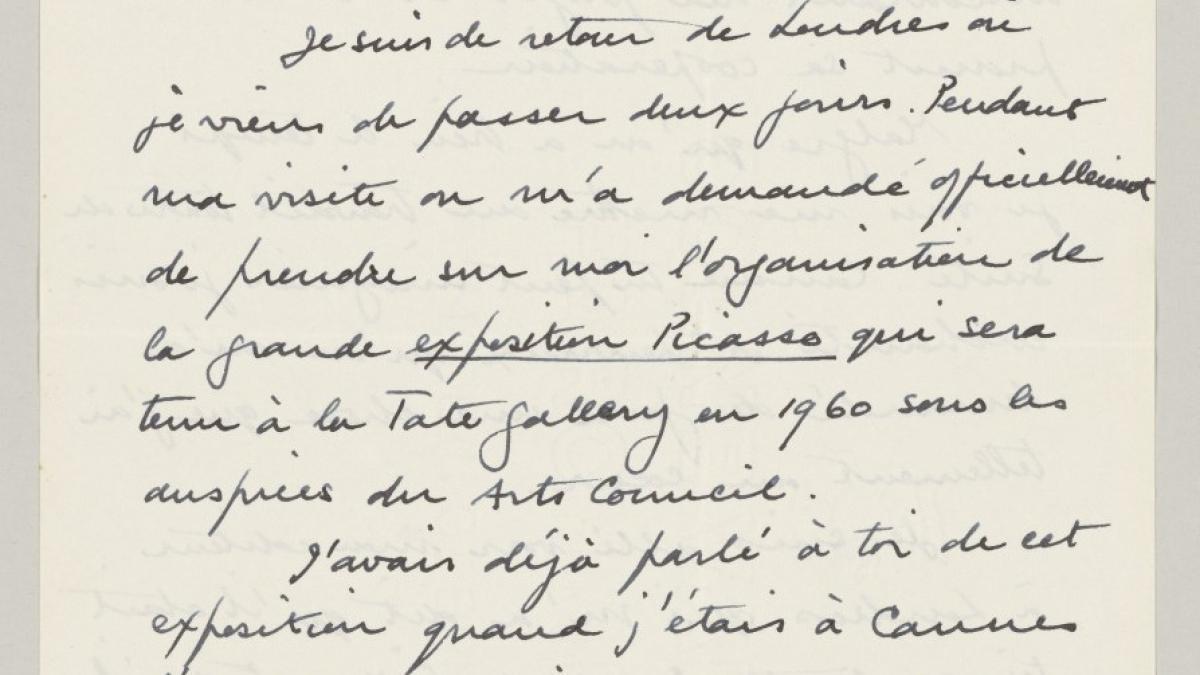 Je suis de retour de Londres où
je viens de passer deux jours. Pendant
ma visite on m'a demandé officiellement
de prendre sur moi l'organisation de
la grande exposition Picasso qui sera
tenu à la Tate Gallery en 1960 sous les
auspices du Arts Council.
J'avais déjà parlé à toi de cet
exposition quand j'étais à Cannes